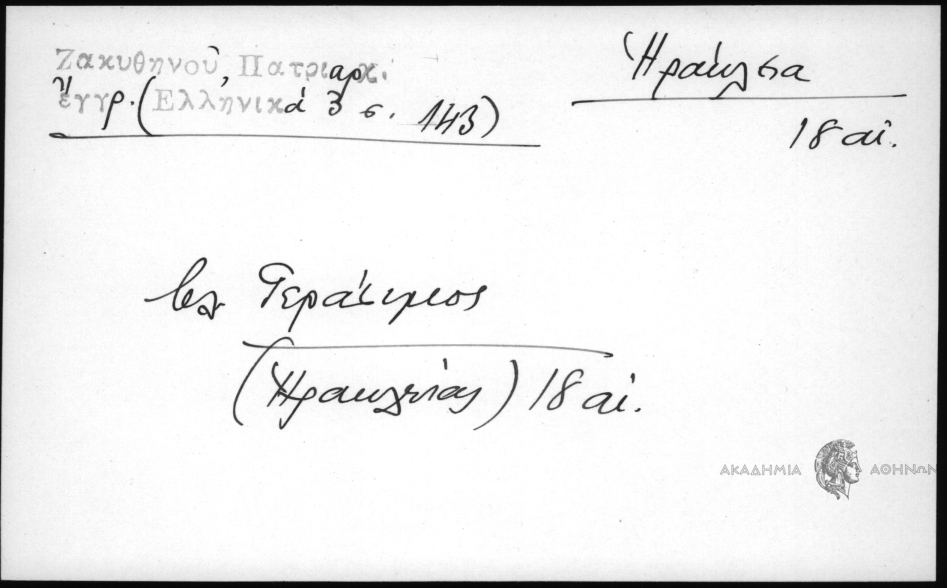 Ζακυθηνοῦ, Πατριαρχ.
ἔγγρ. (Ἑλληνικά 3 σ. 143)
Ἡράκλεια
18 αἰ.
βλ Γεράσιμος
(Ἡρακλείας) 18 αἰ.
ΑΚΑΔΗΜΙΑ ΑΘΗΝΩΝ